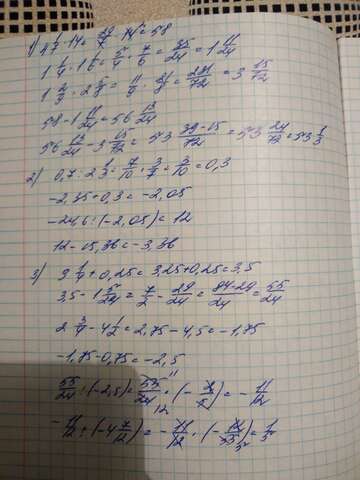 1) 4 1/7 · 14 = 29/7 · 14 = 58
1 1/4 · 1 1/6 = 5/4 · 7/6 = 35/24 = 1 11/24
1 2/9 · 2 5/8 = 11/9 · 21/8 = 231/72 = 3 15/72
58 - 1 11/24 = 56 13/24
56 13/24 - 3 15/72 = 53 39-15/72 = 53 24/72 = 53 1/3
2) 0,7 : 2 1/3 = 7/10 · 3/7 = 3/10 = 0,3
-2,35 + 0,3 = -2,05
-24,6 : (-2,05) = 12
12 - 15,36 = -3,36
3) 3 1/4 + 0,25 = 3,25 + 0,25 = 3,5
3,5 - 1 5/24 = 7/2 - 29/24 = 84-29/24 = 55/24
2 3/4 - 4 1/2 = 2,75 - 4,5 = -1,75
-1,75 - 0,75 = -2,5
55/24 : (-2,5) = 55/24 · (-2/5) = -11/12
-11/12 : (-4 7/12) = -11/12 · (-12/55) = 1/5